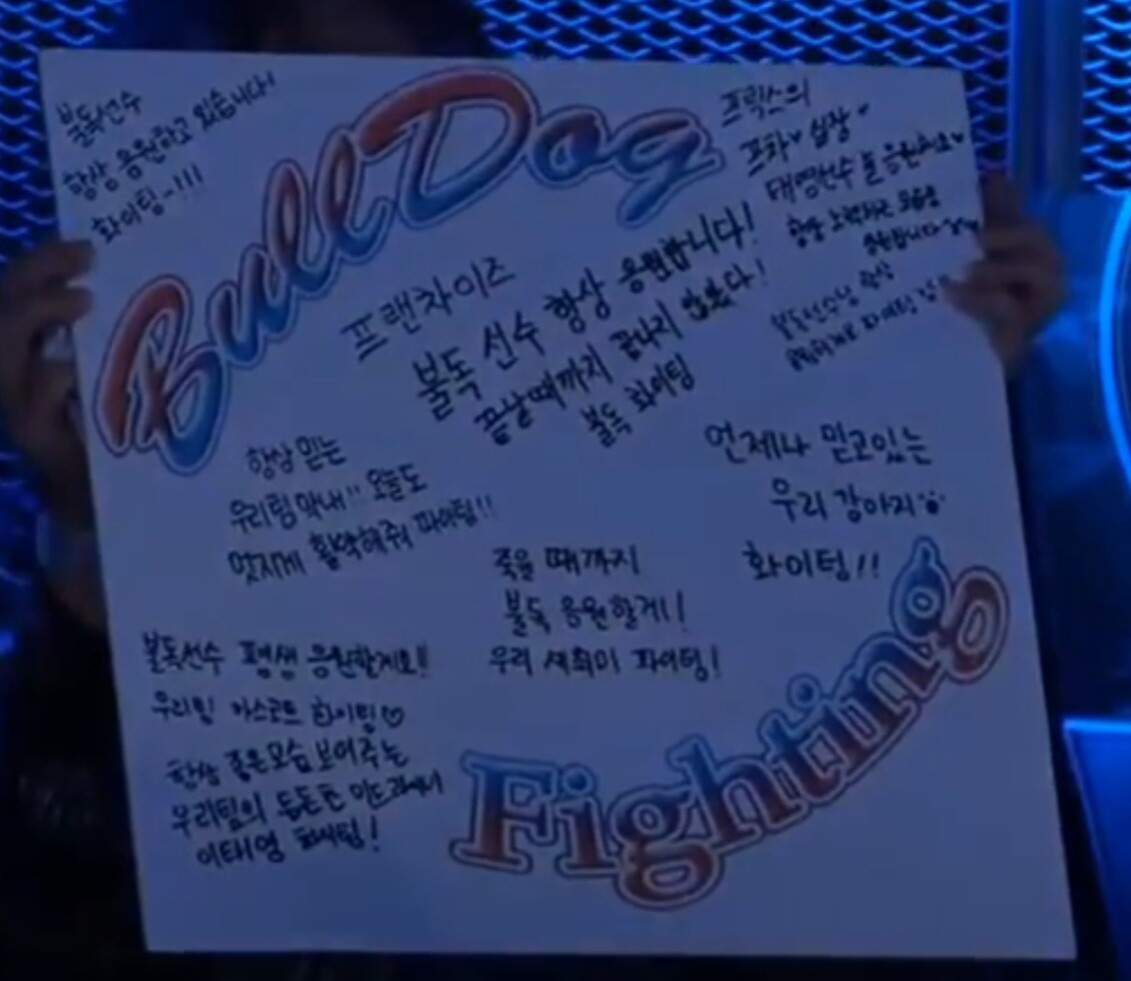 불독선수
항상 응원하고 있습니다!
화이팅~!!!
BullDog
프릭스의
프차♥ 심장♥
태영선수를 응원해요♥
항상
응원합니다
프랜차이즈
불독 선수 항상 응원합니다!
끝날때까지 끝나지 않았다!
불독 화이팅
불독선수님 항상
파이팅
항상 믿는
우리팀 막내!! 오늘도
멋지게 활약해줘 파이팅!!
언제나 믿고있는
우리 강아지
화이팅!!
죽을 때까지
불독 응원할게!
우리 새최미 파이팅!
불독선수 평생 응원할게요!!
우리팀 마스코트 화이팅♡
항상 좋은모습 보여주는
우리팀의 든든한 미드라이너
이태영 파이팅!
Fighting